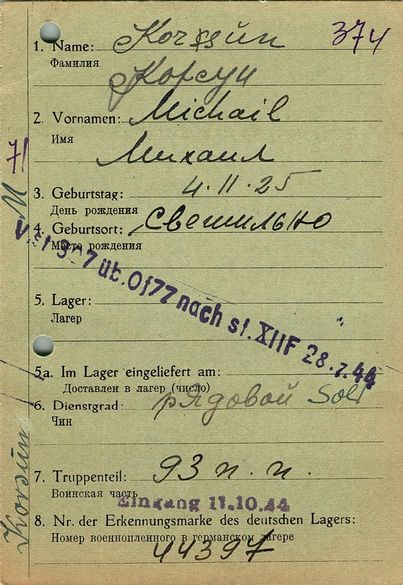 374
1. Name: Korssün
Фамилия
Корсун
2. Vornamen: Michail
Имя
Михаил
3. Geburtstag: 4.11.25
День рождения
4. Geburtsort: Свешильно
Место рождения
V. St 307 üb. Of77 nach St. XIIF 28.7.44
5. Lager:
Лагер
5a. Im Lager eingeliefert am:
Доставлен в лагер (число)
6. Dienstgrad: рядовой Sold
Чин
7. Truppenteil: 93 п. п.
Воинская часть
Eingang 11.10.44
8. Nr. der Erkennungsmarke des deutschen Lagers:
Номер военнопленного в германском лагере
44397
M 71
Korsün